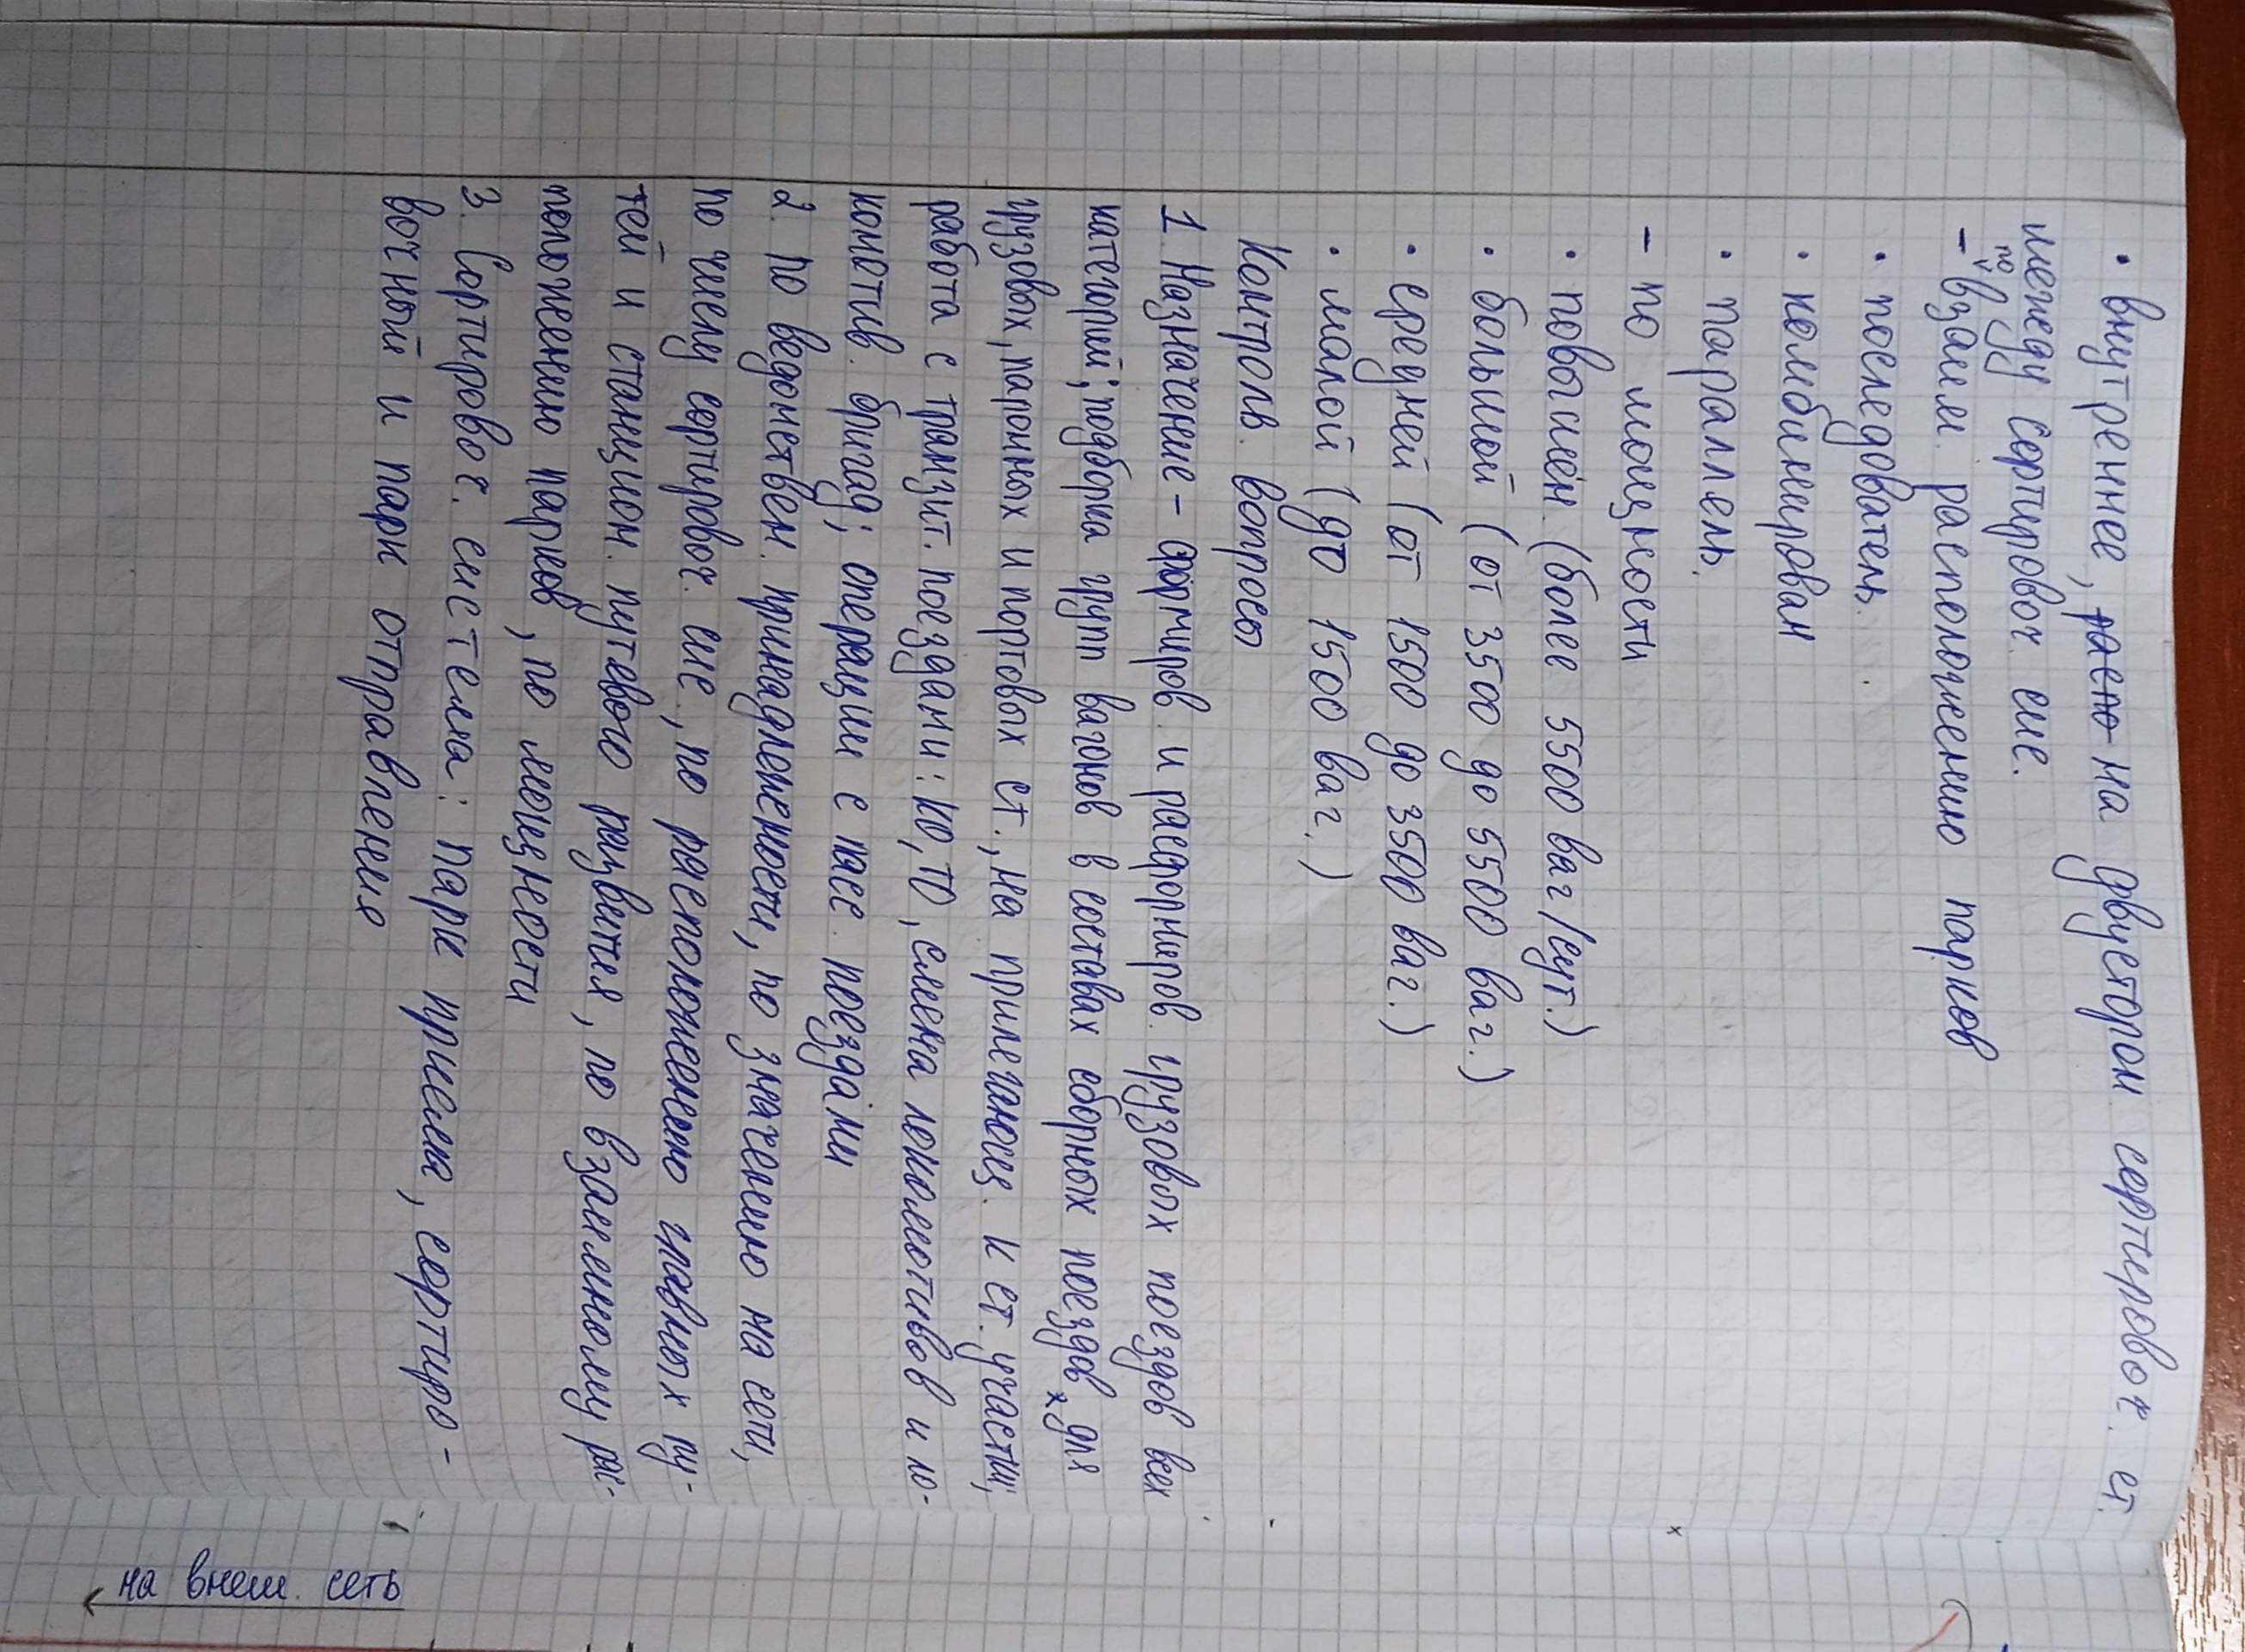 • внутреннее, на двусторон. сортировоч. ст.
между сортировоч. сис.
– по взаим. расположению парков
• последователь.
• комбинирован
• параллель.
– по мощности
• повышен. (более 5500 ваг/сут.)
• большой (от 3500 до 5500 ваг.)
• средней (от 1500 до 3500 ваг.)
• малой (до 1500 ваг.)
Контроль. вопросы
1. Назначение – формиров. и расформиров. грузовых поездов всех
категорий; подборка групп вагонов в составах сборных поездов для
грузовых, паромных и портовых ст., на прилегающ. к ст. участки;
работа с транзит. поездами: КО, ТО, смена локомотивов и ло-
комотив. бригад; операции с пасс. поездами
2. По ведомствен. принадлежности, по значению на сети,
по числу сортировоч. сис, по расположению главных пу-
тей и станцион. путевого развития, по взаимному рас-
положению парков, по мощности
3. Сортировоч. система: парк приема, сортиро-
вочный и парк отправления
на внеш. сеть